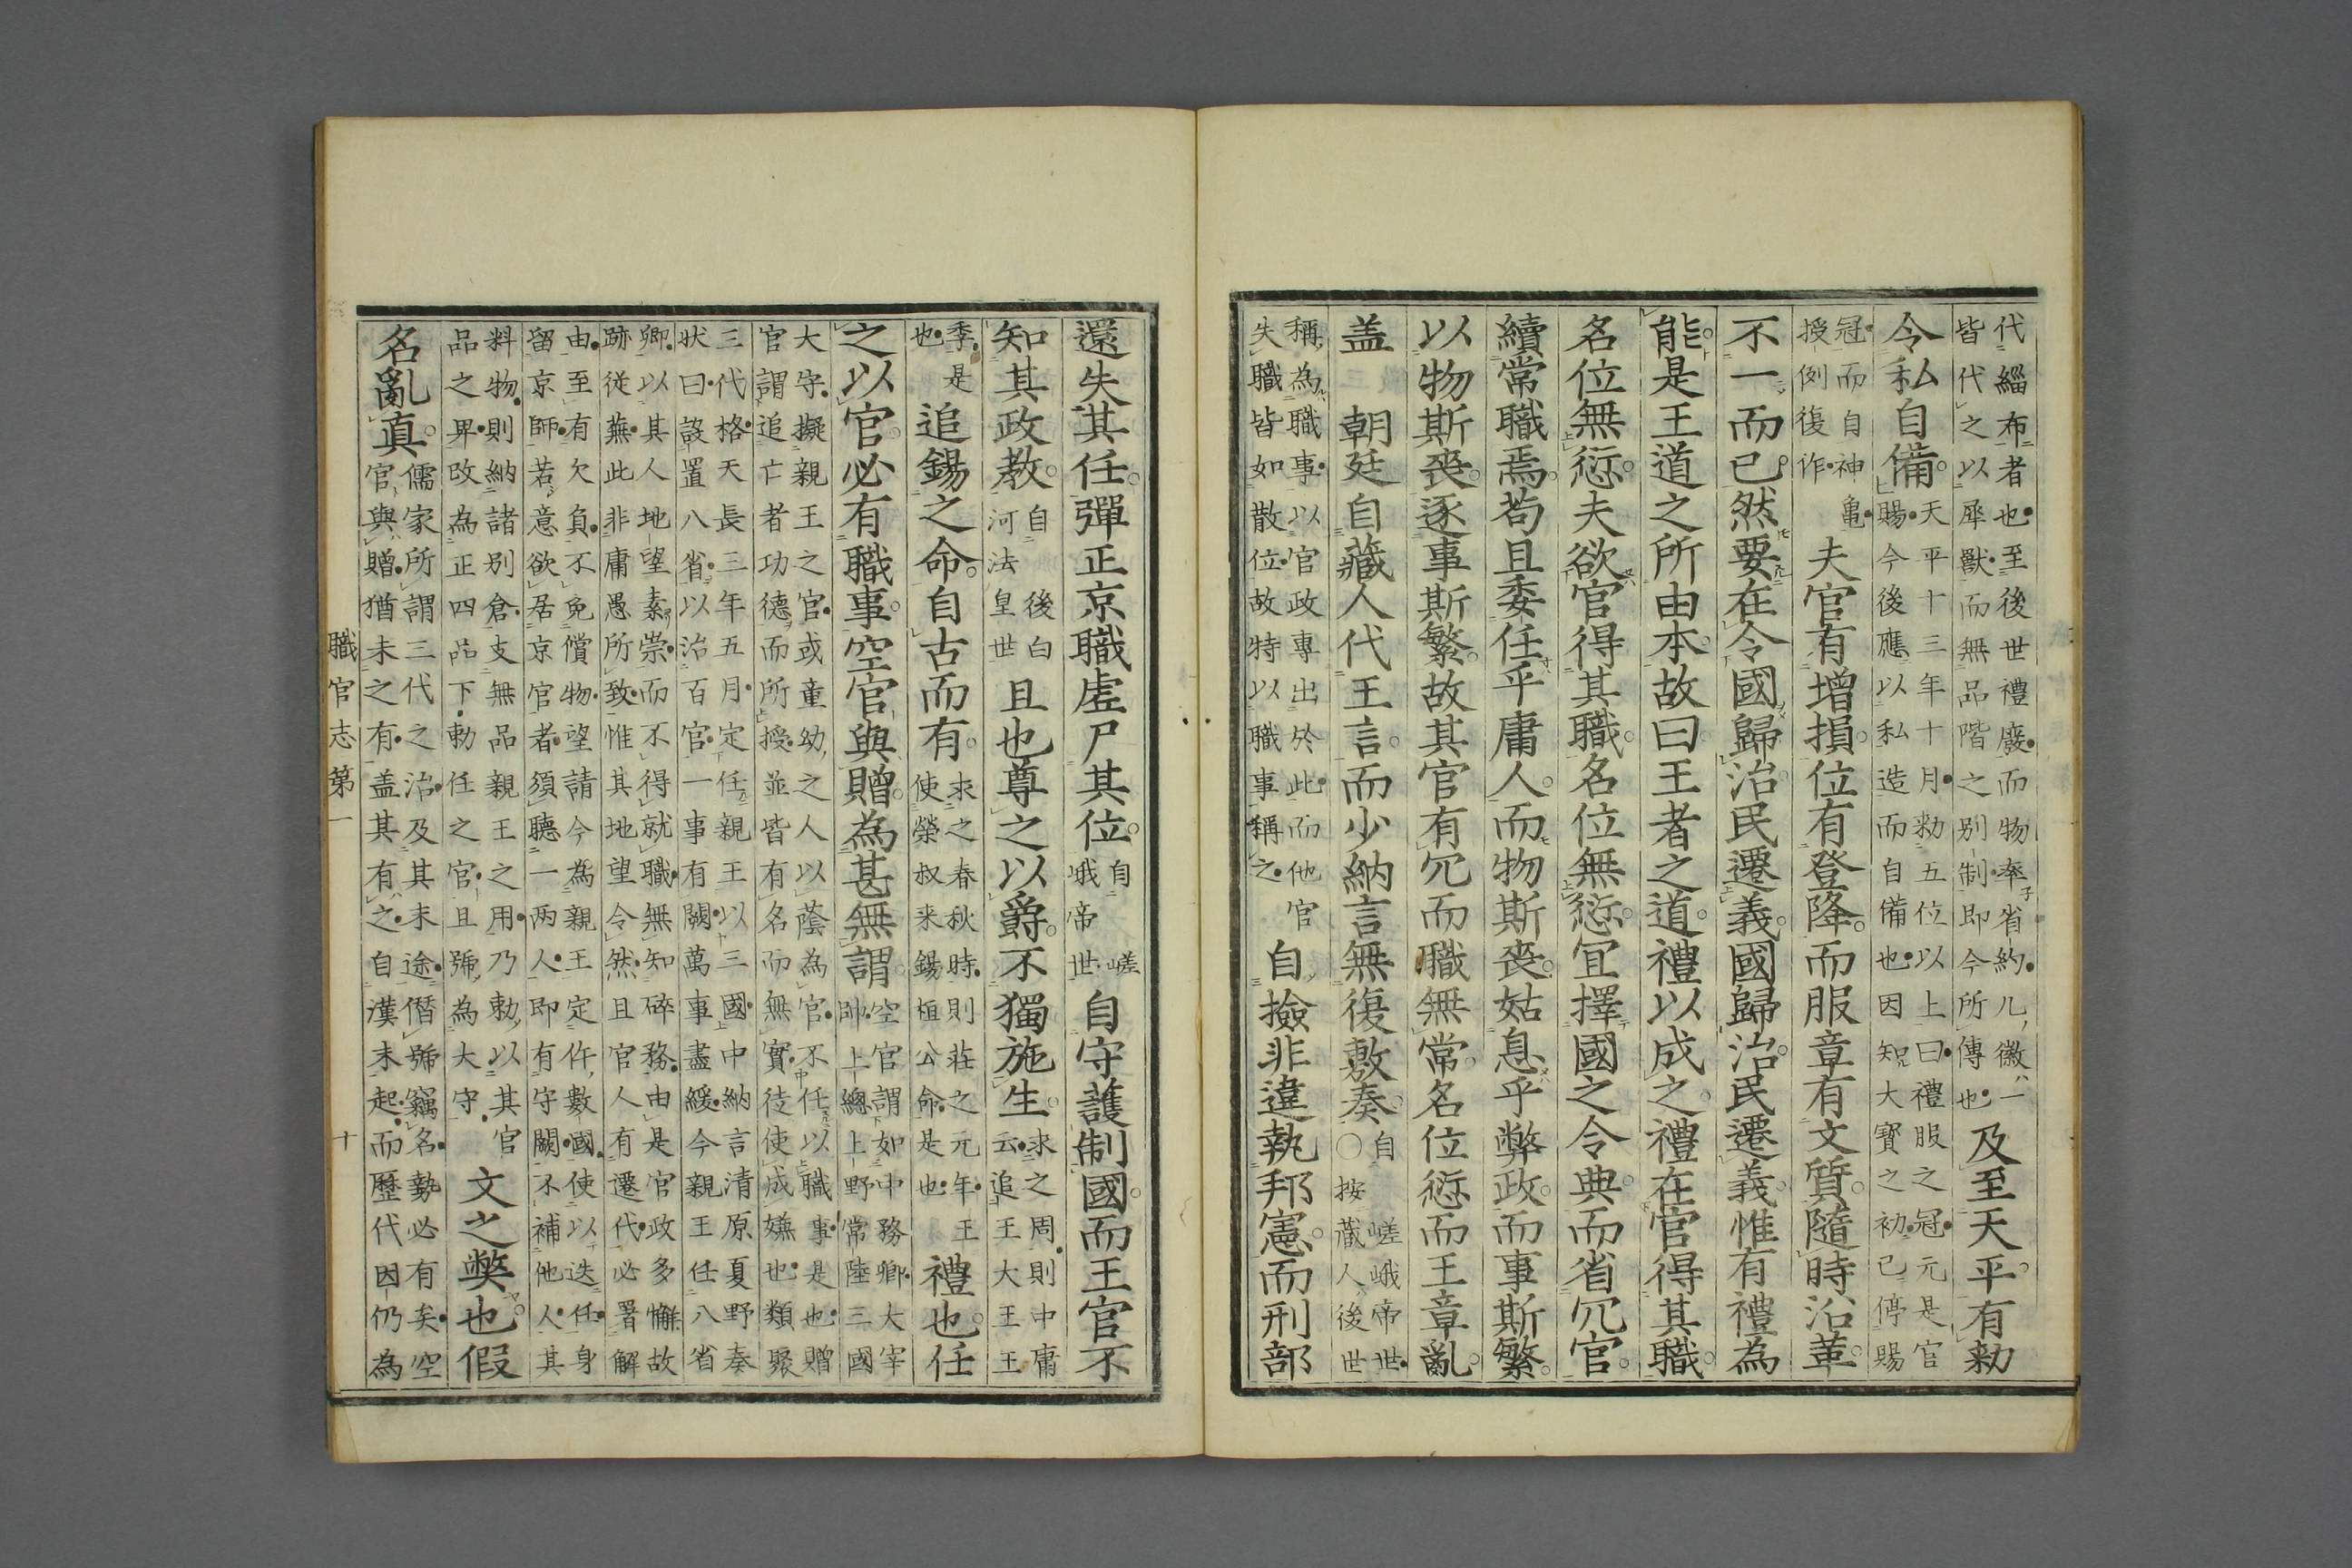 代緇布者也至後世禮廢而物率省約凡徽一
皆代之以犀獸而無品階之別制即今所傳也
及至天平有勅
令私自備
天平十三年十月勅五位以上曰禮服之冠元是官
賜今後應以私造而自備也因知大寶之初已停賜
冠而自神龜
授例復作
夫官有增損位有登降而服章有文質隨時沿革
不一而已然要在令國歸治民遷義國歸治民遷義惟有禮為
能是王道之所由本故曰王者之道禮以成之禮在官得其職
名位無愆夫欲官得其職名位無愆宜擇國之令典而省冗官
續常職焉苟且委任乎庸人而物斯喪姑息乎弊政而事斯繁
以物斯喪逐事斯繁故其官有冗而職無常名位愆而王章亂
盖朝廷自藏人代王言而少納言無復敷奏
自嵯峨帝世
○按藏人後世
稱為職事以官政專出於此而他官
失職皆如散位故特以職事稱之
自撿非違執邦憲而刑部
還失其任彈正京職虛尸其位
自嵯
峨帝世
自守護制國而王官不
知其政教
自後白
河法皇世
且也尊之以爵不獨施生
求之周則中庸
云追王大王王
季是
也
追錫之命自古而有
求之春秋時則莊之元年王
使榮叔来錫桓公命是也
禮也任
之以官必有職事空官與贈為甚無謂
空官謂如中務卿大宰
帥上總上野常陸三國
大守擬親王之官或童幼之人以蔭為官不任以職事是也贈
官謂追亡者功德而所授並皆有名而無實徒使成嫌也類聚
三代格天長三年五月定任親王以三國中納言清原夏野奏
狀曰設置八省以治百官一事有闕萬事盡緩今親王任八省
卿以其人地望素崇而不得就職無知碎務由是官政多懈故
跡從蕪此非庸愚所致惟其地望令然且官人有遷代必署解
由至有欠負不免償物望請今為親王定件數國使以迭任身
留京師若意欲居京官者須聽一两人即有守闕不補他人其
料物則納諸別倉支無品親王之用乃勅以其官
品之界改為正四品下勅任之官且號為大守
文之弊也假
名亂真
儒家所謂三代之治及其末途僭號竊名勢必有矣空
官與贈猶未之有盖其有之自漢末起而歷代因仍為
職官志第一
十